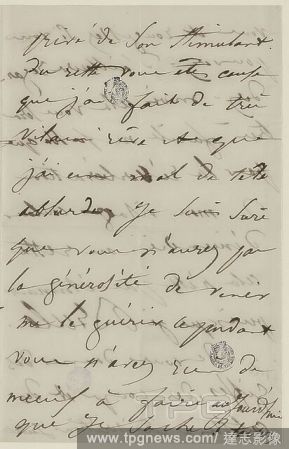 privé de son stimulant.
Du reste vous êtes cause
que j'ai fait de très
vilains rêve et que
j'ai un mal de tête
absurde, je suis sûre
que vous n'aurez pas
la générosité de venir
me le guérir cependant
vous n'avez rien de
mieux à faire aujourd'hui
que je sache
TPG
www.tpgnews.com / 達志影像